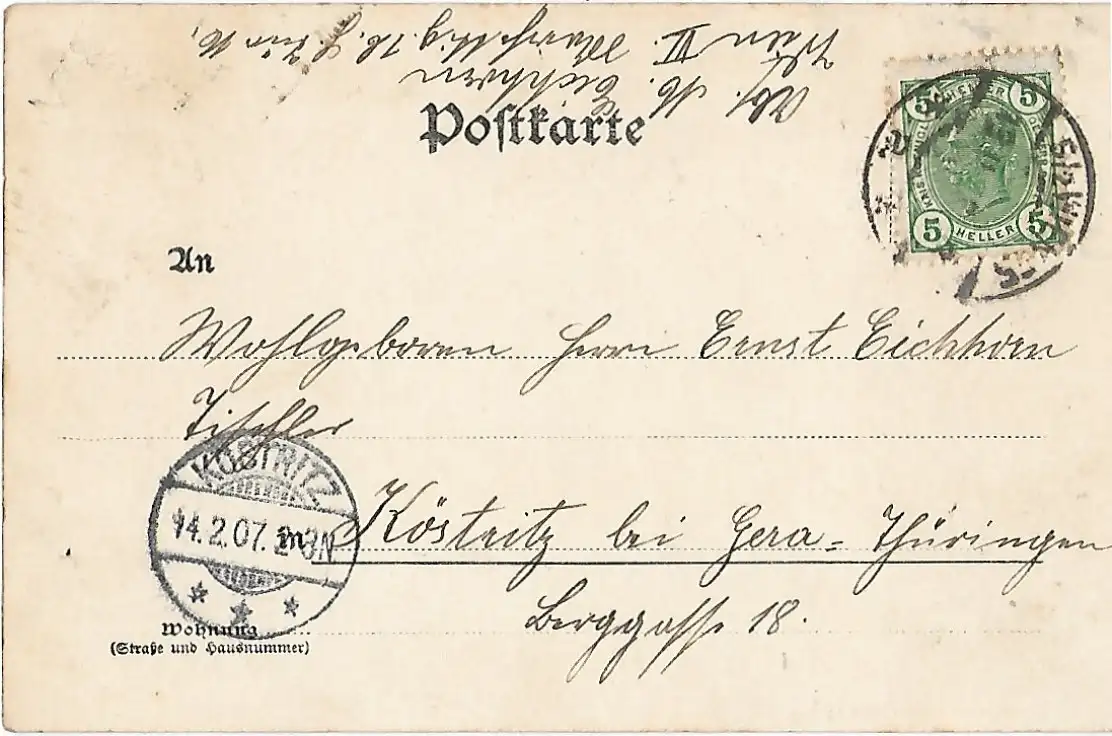 Abs. M. Eichhorn
Wien VI.
Postkarte
5 HELLER 5
5 HELLER 5
An
Wohlgeboren Herrn Ernst Eichhorn
Tischler
KÖSTRITZ
14.2.07. 2-3N
in Köstritz bei Gera-Thüringen
Berggasse 18.
Wohnung
(Straße und Hausnummer)